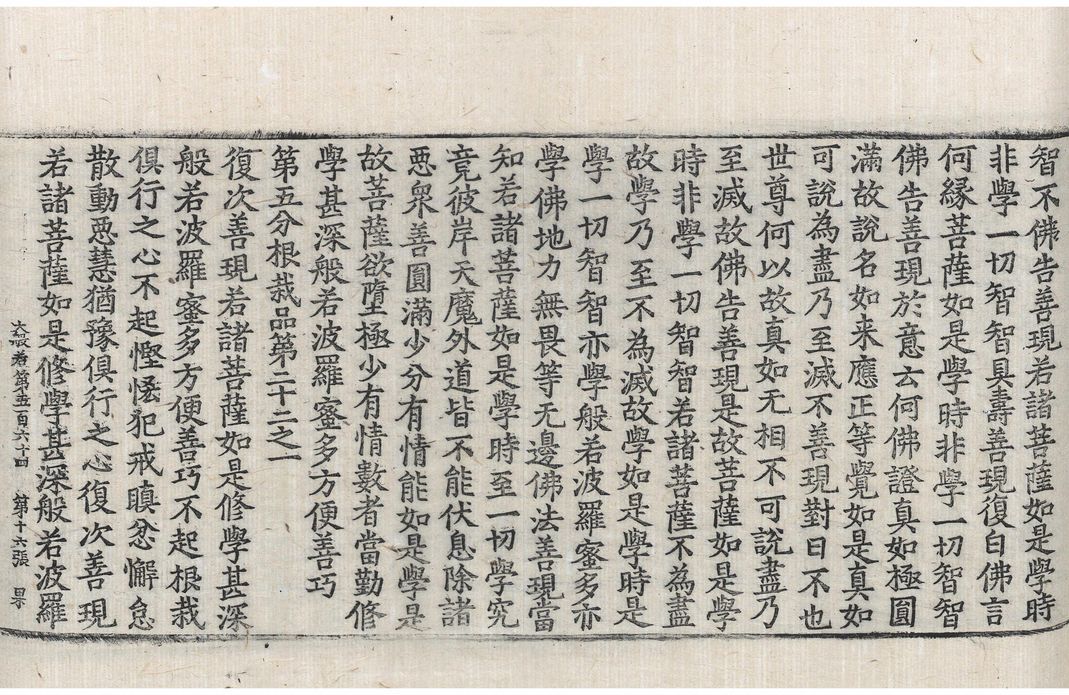 智不佛告善現若諸菩薩如是學時
非學一切智智具壽善現復白佛言
何緣菩薩如是學時非學一切智智
佛告善現於意云何佛證真如極圓
滿故說名如来應正等覺如是真如
可說為盡乃至滅不善現對曰不也
世尊何以故真如无相不可說盡乃
至滅故佛告善現是故菩薩如是學
時非學一切智智若諸菩薩不為盡
故學乃至不為滅故學如是學時是
學一切智智亦學般若波羅蜜多亦
學佛地力無畏等无邊佛法善現當
知若諸菩薩如是學時至一切學究
竟彼岸天魔外道皆不能伏息除諸
惡衆善圓滿少分有情能如是學是
故菩薩欲墮極少有情數者當勤修
學甚深般若波羅蜜多方便善巧
第五分根栽品第二十二之一
復次善現若諸菩薩如是修學甚深
般若波羅蜜多方便善巧不起根栽
俱行之心不起慳悋犯戒瞋忿懈怠
散動惡慧猶豫俱行之心復次善現
若諸菩薩如是修學甚深般若波羅
大般若第五百六十四 第十六張 昃